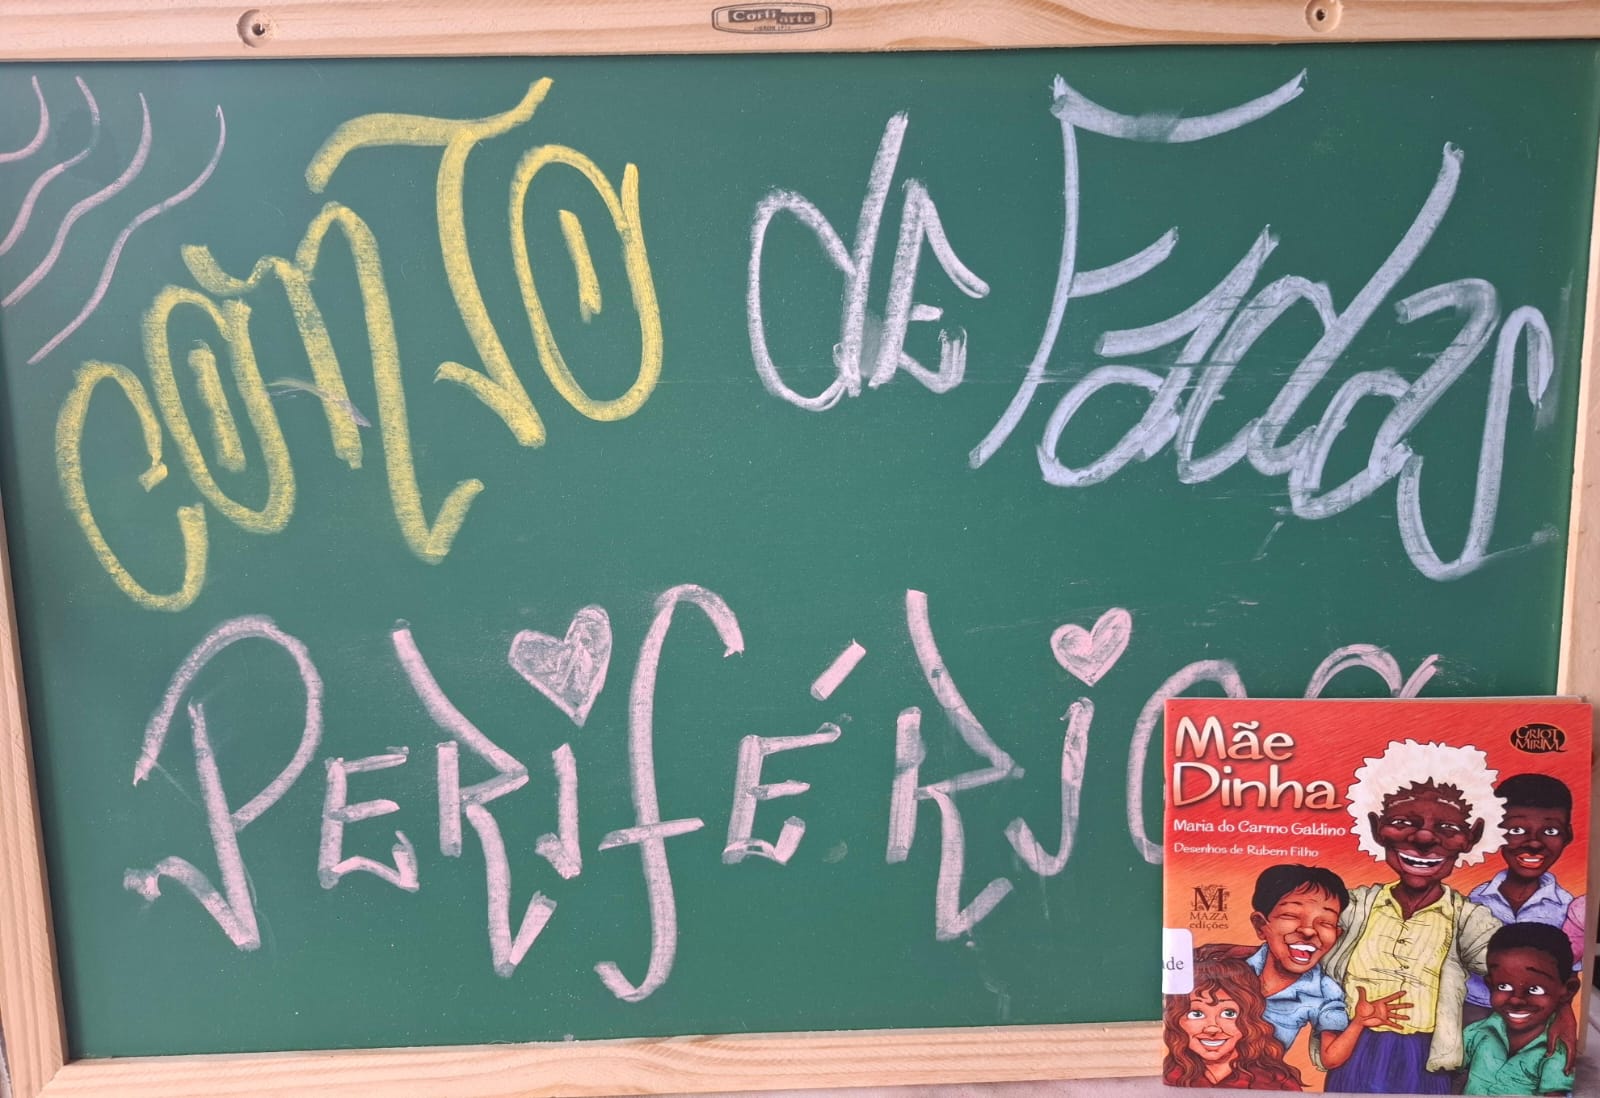 Corti arte
CONTO de Fadas
PERIFÉRIC
Mãe
Dinha
GRIOT
MIRIM
Maria do Carmo Galdino
Desenhos de Rubem Filho
M
MAZZA
edições
ade